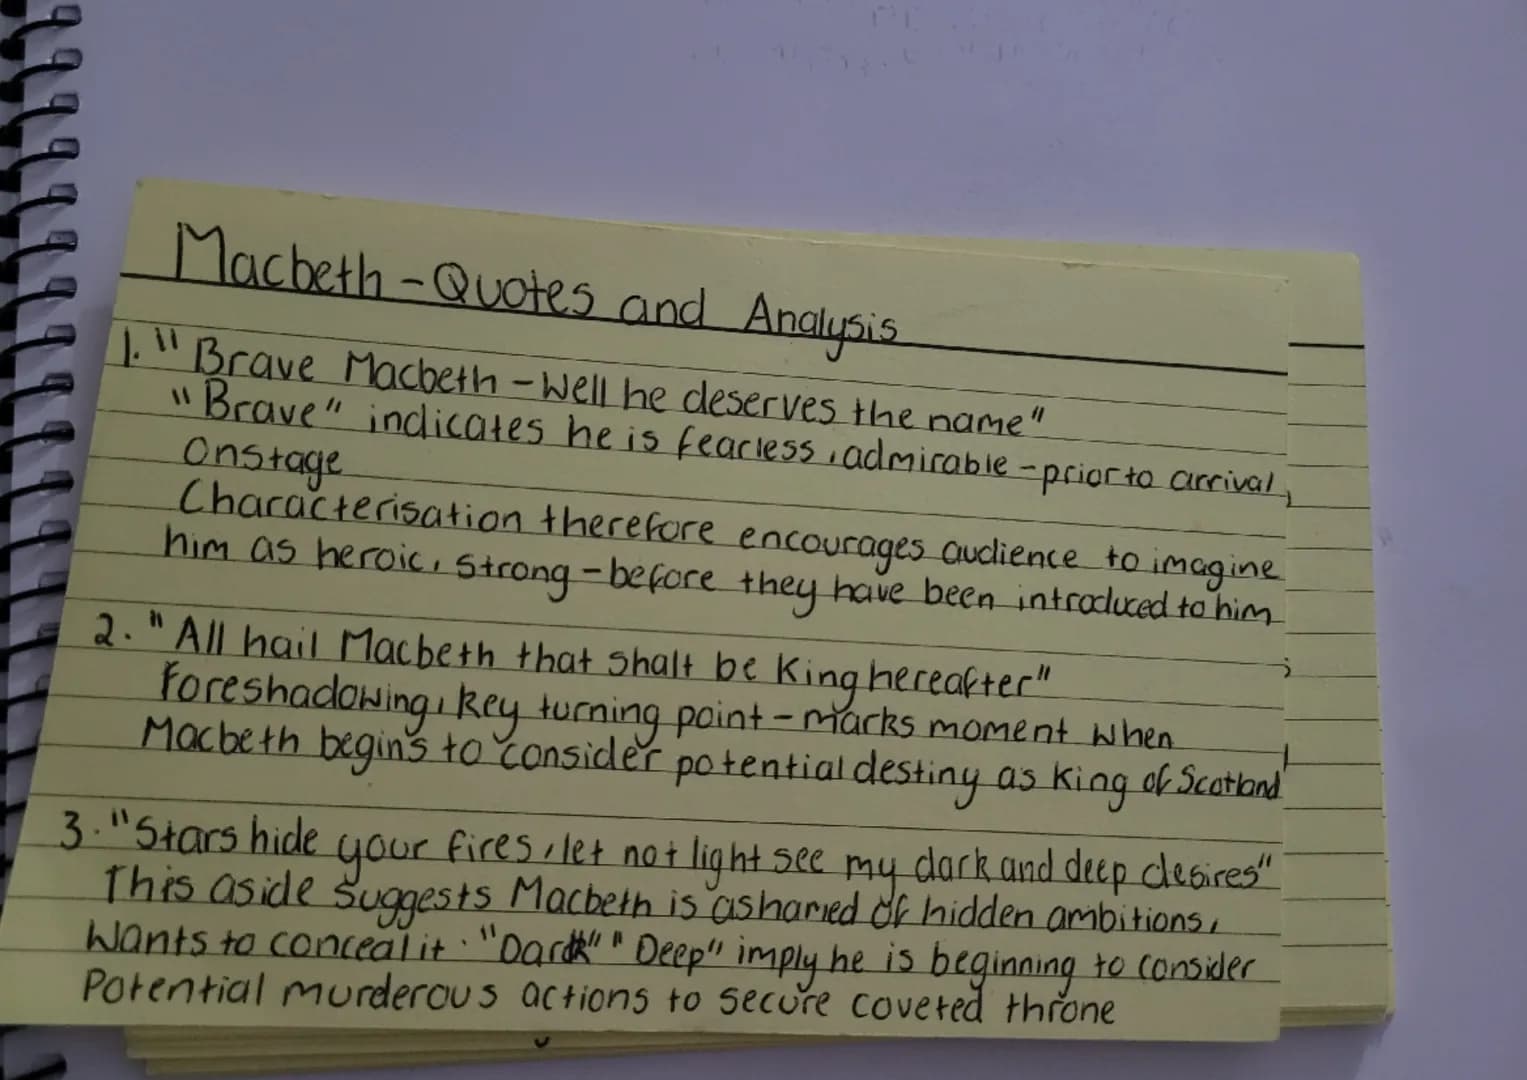 Macbeth - Quotes and Analysis
1. "Brave Macbeth - Well he deserves the name"
"Brave" indicates he is fearless, admirable - prior to arrival,
Onstage
Characterisation therefore encourages audience to imagine
him as heroic, strong - before they have been introduced to him
2. "All hail Macbeth that shalt be King hereafter"
Foreshadowing, key turning point - marks moment when
Macbeth begins to consider potential destiny as King of Scotland
3. "Stars hide your fires, let not light see my dark and deep desires"
This aside suggests Macbeth is ashamed of hidden ambitions,
Wants to conceal it. "Dark" "Deep" imply he is beginning to consider
Potential murderous actions to secure coveted throne